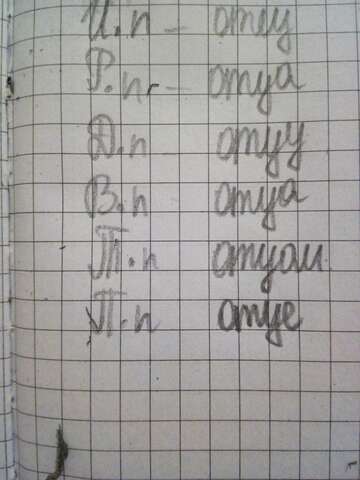 И.п – отец
Р.п. – отца
Д.п отцу
В.п отца
Т.п отцом
П.п отце